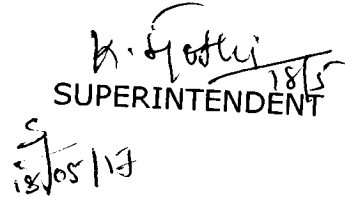 K. Jyothi
18/5
SUPERINTENDENT
18/05/17